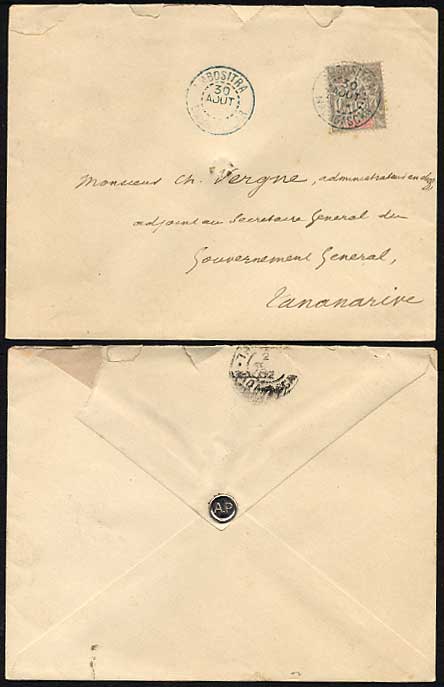 AMBOSITRA
30
AOUT
AMBOSITRA
30
AOUT
MADAGASCAR
Monsieur Ch. Vergne, administrateur en chef
adjoint au Secrétaire Général du
Gouvernement Général,
Tananarive
2
A.P